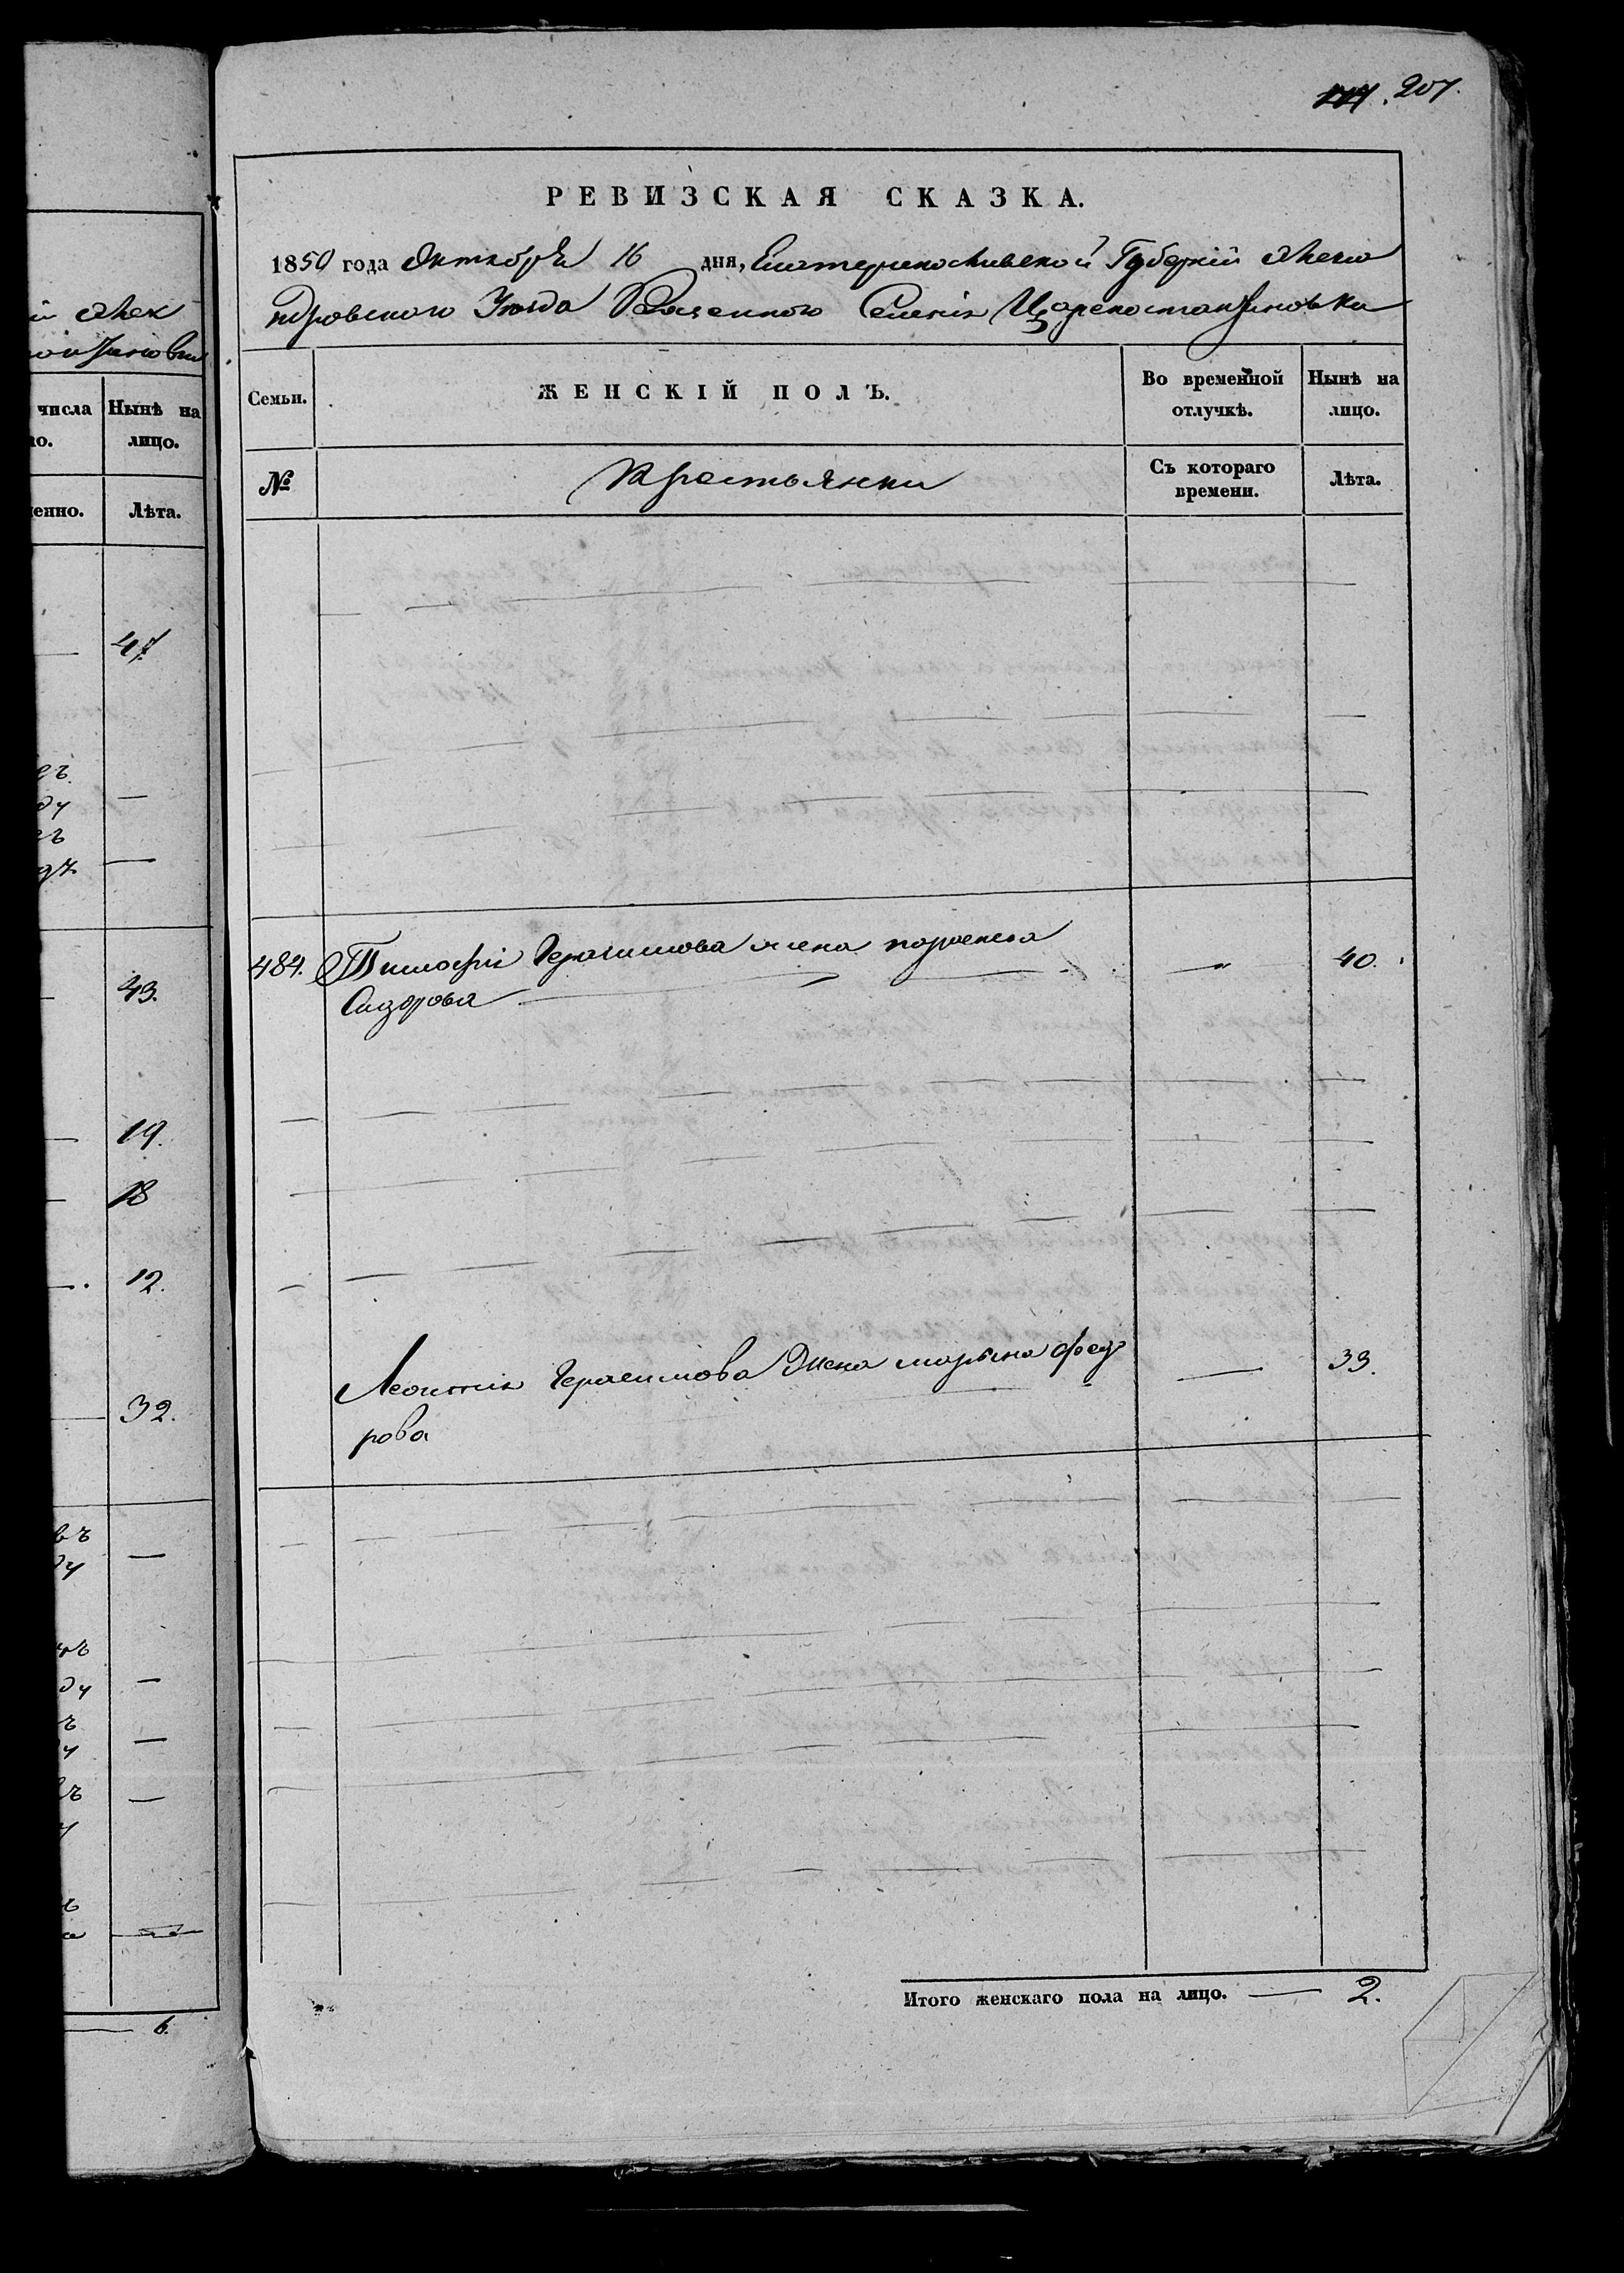 й Алек
числа Нынѣ на
но. лицо.
Лѣта.
47
—
—
43.
19.
18
12.
32.
—
—
—
—
6.
207.
РЕВИЗСКАЯ СКАЗКА.
1850 года Октября 16 дня, Екатеринославской Губерніи Алекса
ндровского Уезда Казенного Селенія Цареконстантиновки
Семьи. ЖЕНСКІЙ ПОЛЪ. Во временной отлучкѣ. Нынѣ на лицо.
№ Крестьянки Съ котораго времени. Лѣта.
484. Тимофея Герасимова жена — 40.
Сидорова
Леонтія Герасимова Жена марына федо — 33.
рова
Итого женскаго пола на лицо. — 2.